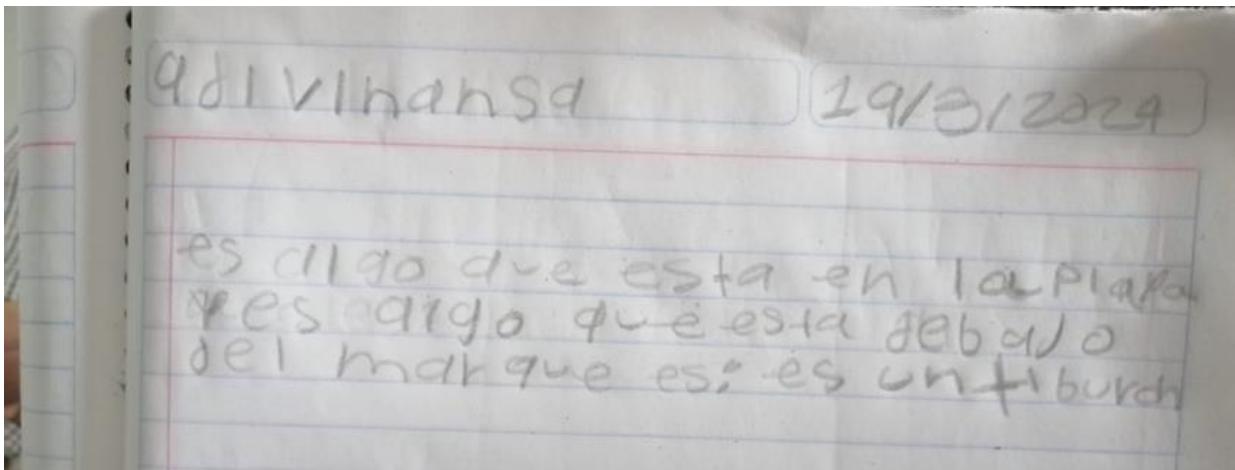 adivinansa
19/3/2024
es algo que esta en la playa
y es algo que esta debajo
del mar que es: es un tiburon